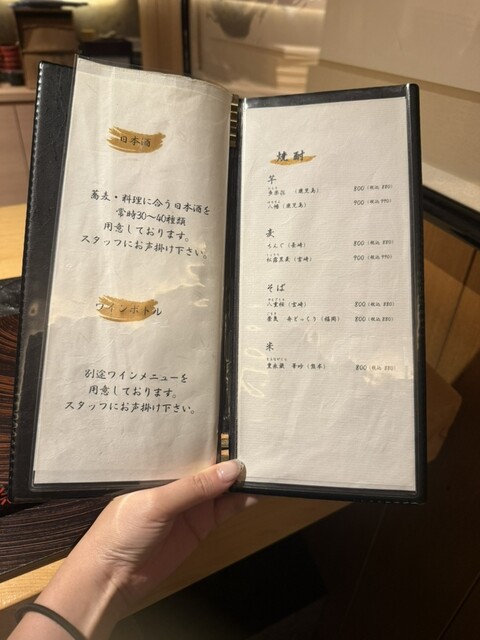 日本酒
蕎麦・料理に合う日本酒を
常時30〜40種類
用意しております。
スタッフにお声掛け下さい。
ワインボトル
別途ワインメニューを
用意しております。
スタッフにお声掛け下さい。
焼酎
芋
(鹿児島) 800 (税込 880)
八幡 (鹿児島) 900 (税込 990)
麦
うんぐ (長崎) 800 (税込 880)
(宮崎) 900 (税込 990)
そば
八重桜 (宮崎) 800 (税込 880)
(福岡) 800 (税込 880)
米
豊永蔵 (熊本) 800 (税込 880)